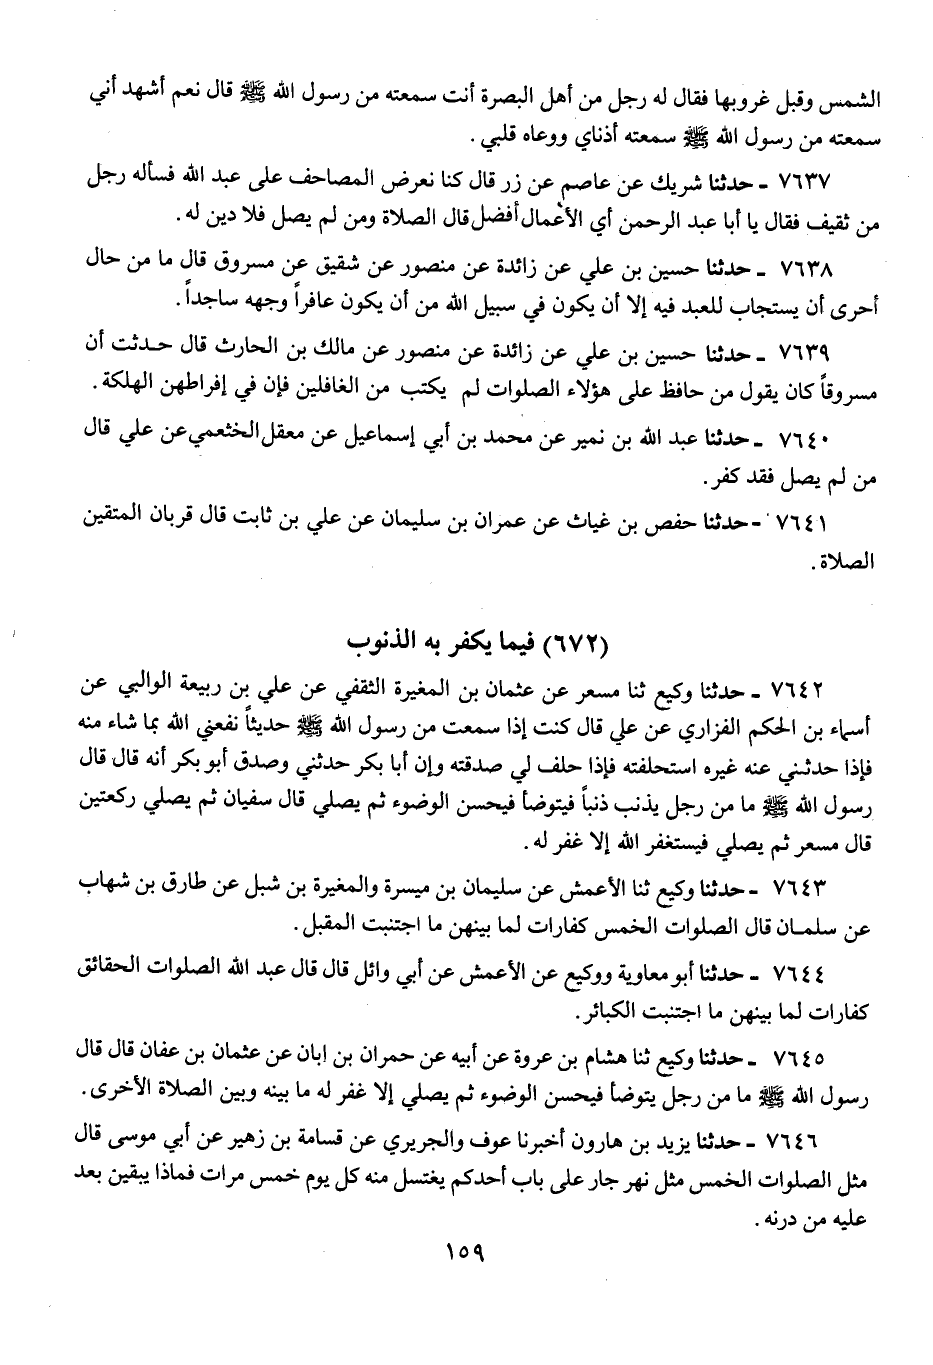 الشمس وقبل غروبها فقال له رجل من أهل البصرة أنت سمعته من رسول الله ﷺ قال نعم أشهد أني
سمعته من رسول الله ﷺ سمعته أذناي ووعاه قلبي .
٧٦٣٧ ـ حدثنا شريك عن عاصم عن زر قال كنا نعرض المصاحف على عبد الله فسأله رجل
من ثقيف فقال يا أبا عبد الرحمن أي الأعمال أفضل قال الصلاة ومن لم يصل فلا دين له .
٧٦٣٨ ـ حدثنا حسين بن علي عن زائدة عن منصور عن شقيق عن مسروق قال ما من حال
أحرى أن يستجاب للعبد فيه إلا أن يكون في سبيل الله من أن يكون عافراً وجهه ساجداً .
٧٦٣٩ ـ حدثنا حسين بن علي عن زائدة عن منصور عن مالك بن الحارث قال حدثت أن
مسروقاً كان يقول من حافظ على هؤلاء الصلوات لم يكتب من الغافلين فإن في إفراطهن الهلكة .
٧٦٤٠ ـ حدثنا عبد الله بن نمير عن محمد بن أبي إسماعيل عن معقل الخثعمي عن علي قال
من لم يصل فقد كفر .
٧٦٤١ ـ حدثنا حفص بن غياث عن عمران بن سليمان عن علي بن ثابت قال قربان المتقين
الصلاة .
(٦٧٢) فيما يكفر به الذنوب
٧٦٤٢ ـ حدثنا وكيع ثنا مسعر عن عثمان بن المغيرة الثقفي عن علي بن ربيعة الوالبي عن
أسماء بن الحكم الفزاري عن علي قال كنت إذا سمعت من رسول الله ﷺ حديثاً نفعني الله بما شاء منه
فإذا حدثني عنه غيره استحلفته فإذا حلف لي صدقته وإن أبا بكر حدثني وصدق أبو بكر أنه قال قال
رسول الله ﷺ ما من رجل يذنب ذنباً فيتوضأ فيحسن الوضوء ثم يصلي قال سفيان ثم يصلي ركعتين
قال مسعر ثم يصلي فيستغفر الله إلا غفر له .
٧٦٤٣ ـ حدثنا وكيع ثنا الأعمش عن سليمان بن ميسرة والمغيرة بن شبل عن طارق بن شهاب
عن سلمان قال الصلوات الخمس كفارات لما بينهن ما اجتنبت المقبل .
٧٦٤٤ ـ حدثنا أبو معاوية ووكيع عن الأعمش عن أبي وائل قال قال عبد الله الصلوات الحقائق
كفارات لما بينهن ما اجتنبت الكبائر .
٧٦٤٥ ـ حدثنا وكيع ثنا هشام بن عروة عن أبيه عن حمران بن ابان عن عثمان بن عفان قال قال
رسول الله ﷺ ما من رجل يتوضأ فيحسن الوضوء ثم يصلي إلا غفر له ما بينه وبين الصلاة الأخرى .
٧٦٤٦ ـ حدثنا يزيد بن هارون أخبرنا عوف والجريري عن قسامة بن زهير عن أبي موسى قال
مثل الصلوات الخمس مثل نهر جار على باب أحدكم يغتسل منه كل يوم خمس مرات فماذا يبقين بعد
عليه من درنه .
١٥٩